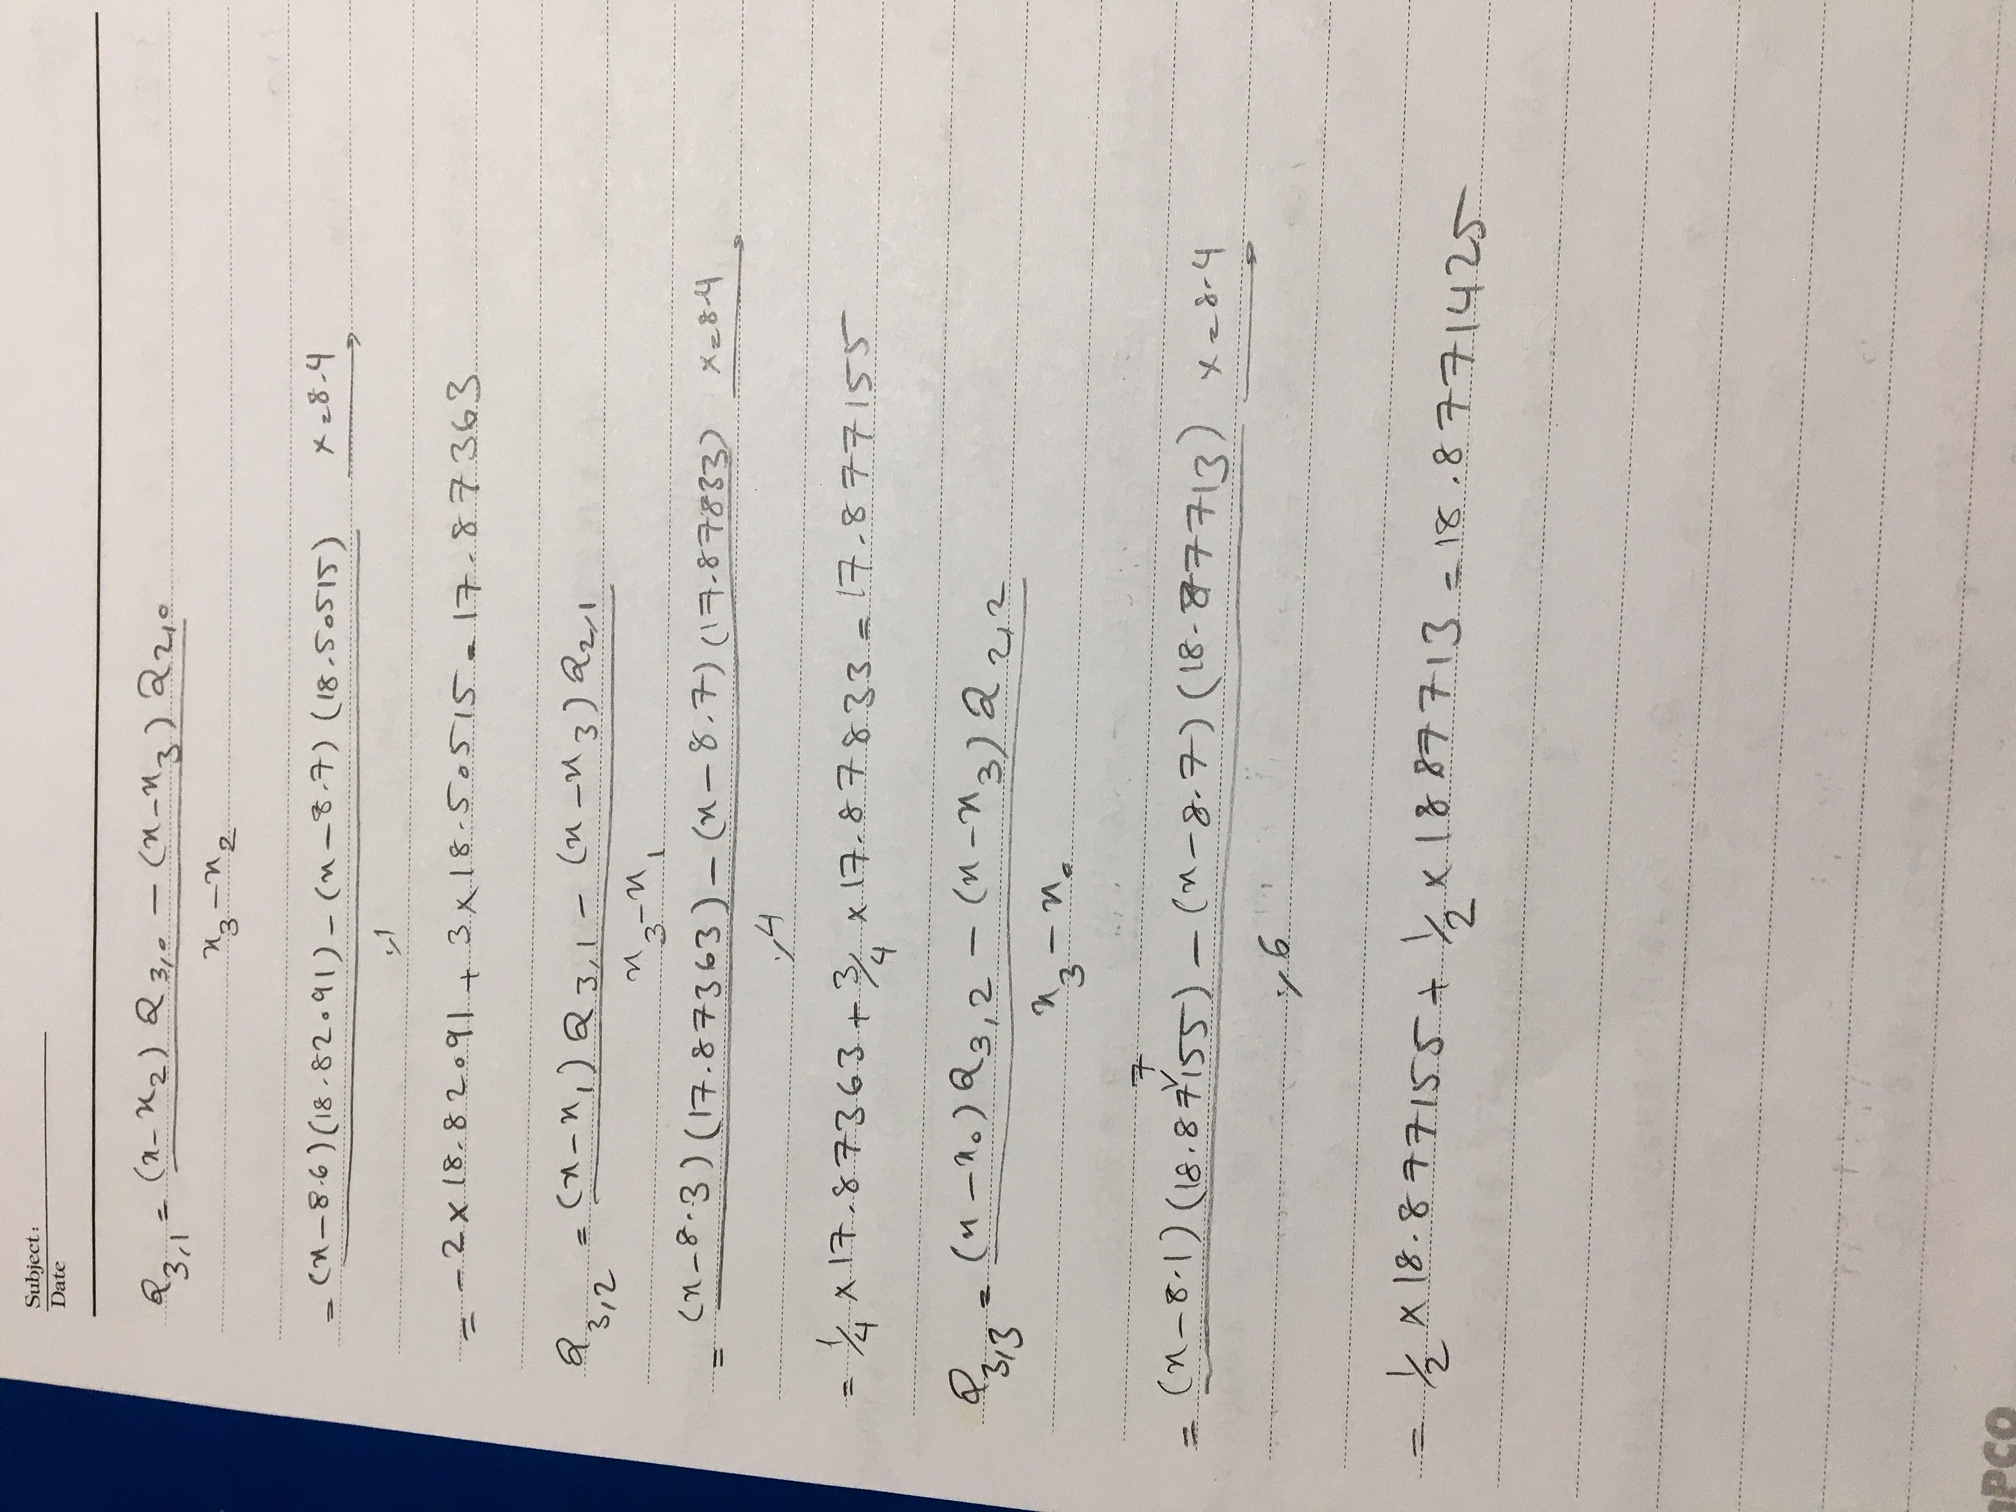 Subject:
Date
Q3,1 = (x-x2) Q3,0 - (x-x3) Q2,0
x3-x2
= (x-8.6)(18.82091) - (x-8.7)(18.50515) x=8.4
.,1
= -2 × 18.82091 + 3 × 18.50515 = 17.87363
Q3,2 = (x-x1) Q3,1 - (x-x3) Q2,1
x3-x1
= (x-8.3)(17.87363) - (x-8.7)(17.87833) x=8.4
.,4
= 1/4 × 17.87363 + 3/4 × 17.87833 = 17.877155
Q3,3 = (x-x0) Q3,2 - (x-x3) Q2,2
x3-x0
7
= (x-8.1)(18.87155) - (x-8.7)(18.87713) x=8.4
.,6
= 1/2 × 18.877155 + 1/2 × 1887713 = 18.8771425
PCO